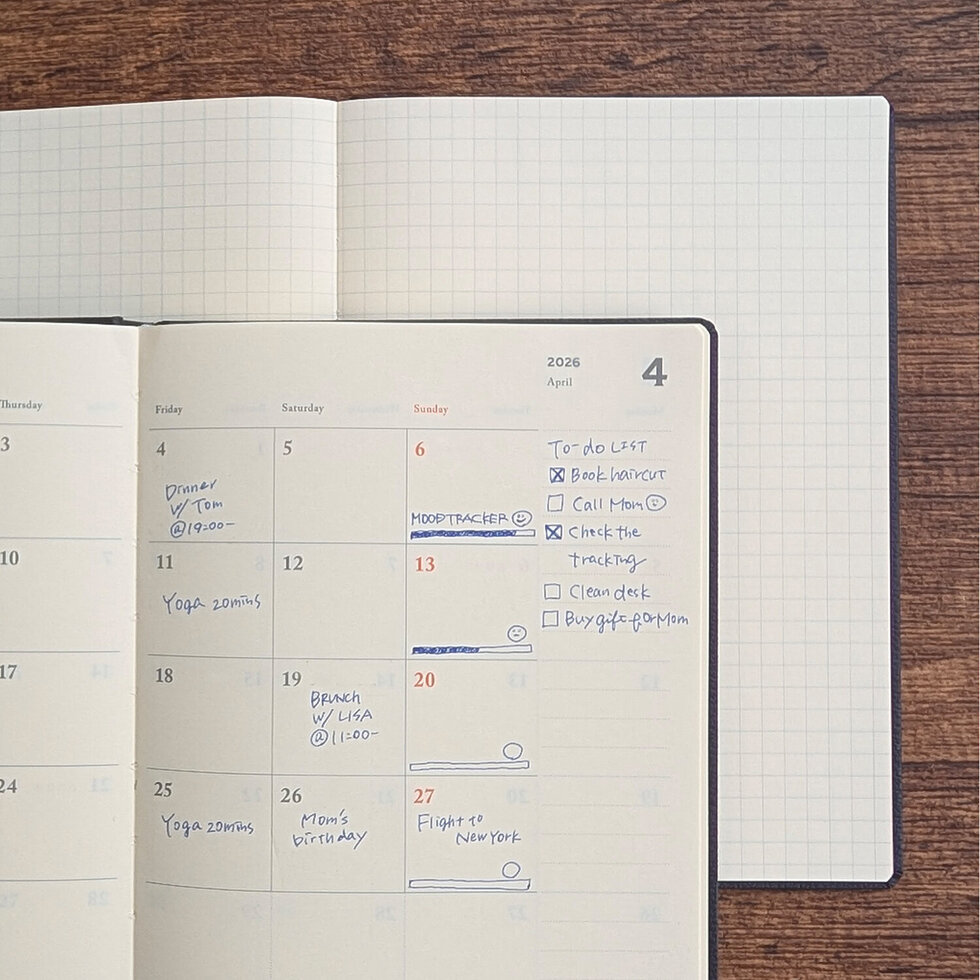 2026
April
4
Thursday
Friday
Saturday
Sunday
3
4
5
6
Dinner
w/ Tom
@19:00-
MOOD TRACKER
10
11
12
13
Yoga 20mins
17
18
19
20
BRUNCH
W/ LISA
@11:00-
24
25
26
27
Yoga 20mins
Mom's
birthday
Flight to
New York
To-do LIST
Book haircut
Call Mom
Check the
tracking
Clean desk
Buy gift for Mom